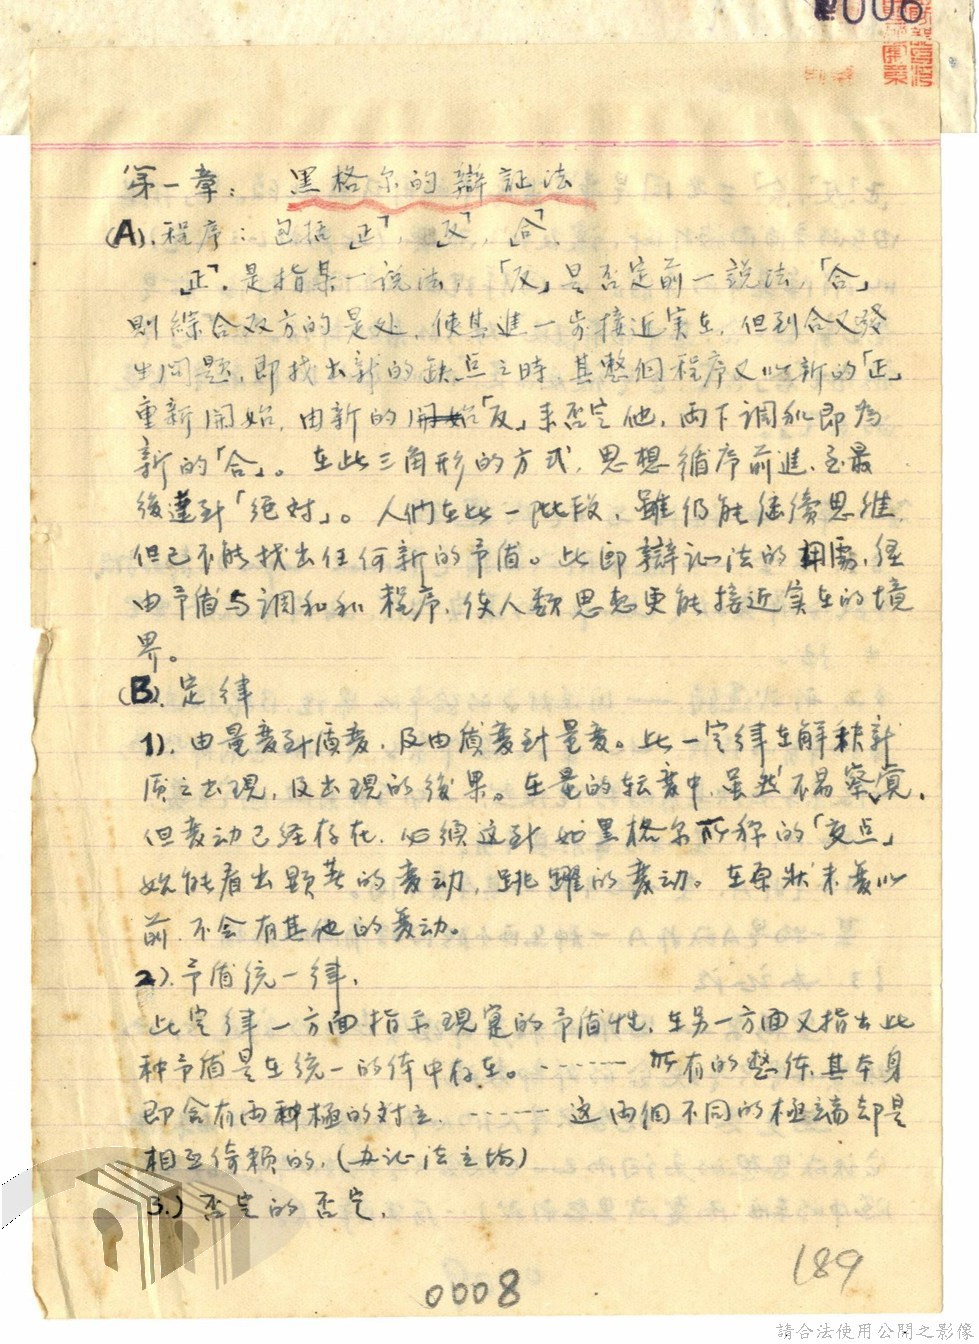 006
第一章: 黑格尔的辯証法
(A).程序：包括「正」,「反」「合」.
「正」.是指某一說法,「反」是否定前一說法,「合」
則綜合双方的是处, 使其進一步接近実在, 但到合又發
生问题,即找出新的缺点之時,其整個程序又以新的「正」
重新開始, 由新的「反」来否定他, 两下調和即為
新的「合」。在此三角形的方式, 思想循序前進,至最
後達到「絕对」。人們在此一阶段, 雖仍能継續思维,
但已不能找出任何新的予盾。此即辯证法的用處,经
由予盾与調和和程序,使人類思想更能接近实在的境
界。
(B).定律
1). 由量变到质变,及由质变到量变。此一定律在解釈新
质之出現,及出現的後果。在量的転变中,虽然不易察覚,
但变动已经存在, 必须达到如黑格尔所称的「交点」
始能看出顕著的变动, 跳躍的变动。在原狀未变以
前,不会有其他的变动。
2).予盾统一律,
此定律一方面指示現寔的予盾性,在另一方面又指出此
种予盾是在统一的体中存在。------所有的整体,其本身
即含有两种極的对立, ------ 这两個不同的極端却是
相互倚賴的,(办证法立场)
3.) 否定的否定,
189
0008
請合法使用公開之影像